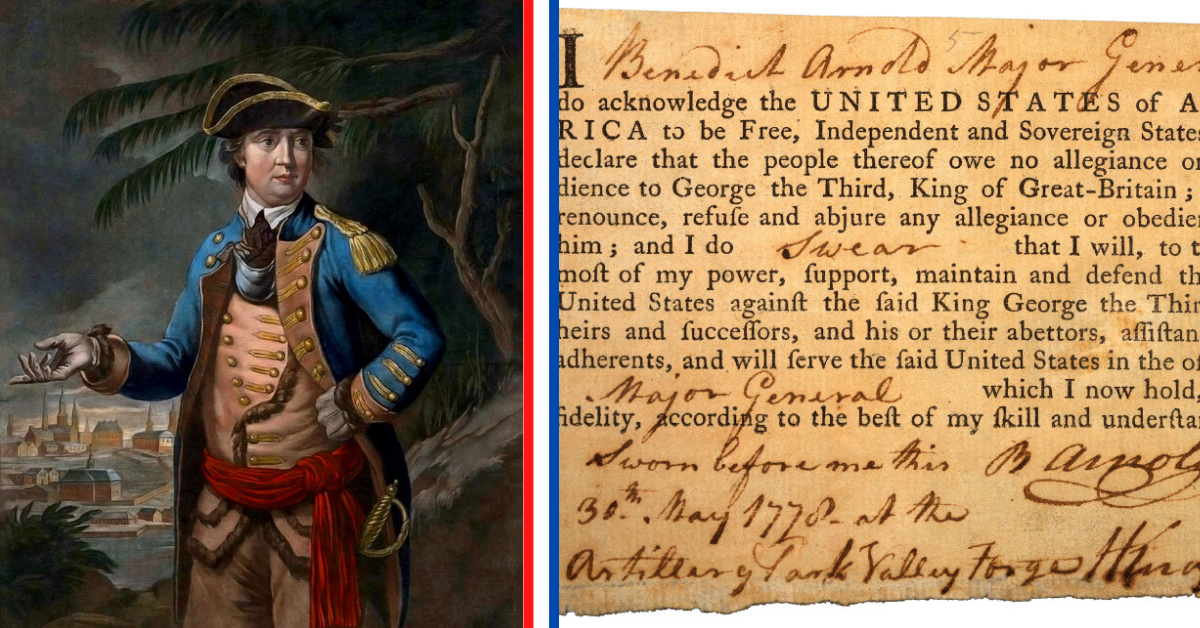 I Benedict Arnold Major Gener
do acknowledge the UNITED STATES of A
RICA to be Free, Independent and Sovereign States
declare that the people thereof owe no allegiance or
dience to George the Third, King of Great-Britain ;
renounce, refuſe and abjure any allegiance or obedie
him ; and I do Swear that I will, to t
moſt of my power, ſupport, maintain and defend th
United States againſt the ſaid King George the Thir
heirs and ſucceſſors, and his or their abettors, aſſiſtan
adherents, and will ſerve the ſaid United States in the of
Major General which I now hold,
fidelity, according to the beſt of my ſkill and underſta
Sworn before me this B Arnold
30th. May 1778 - at the
Artillery Park Valley Forge HKno